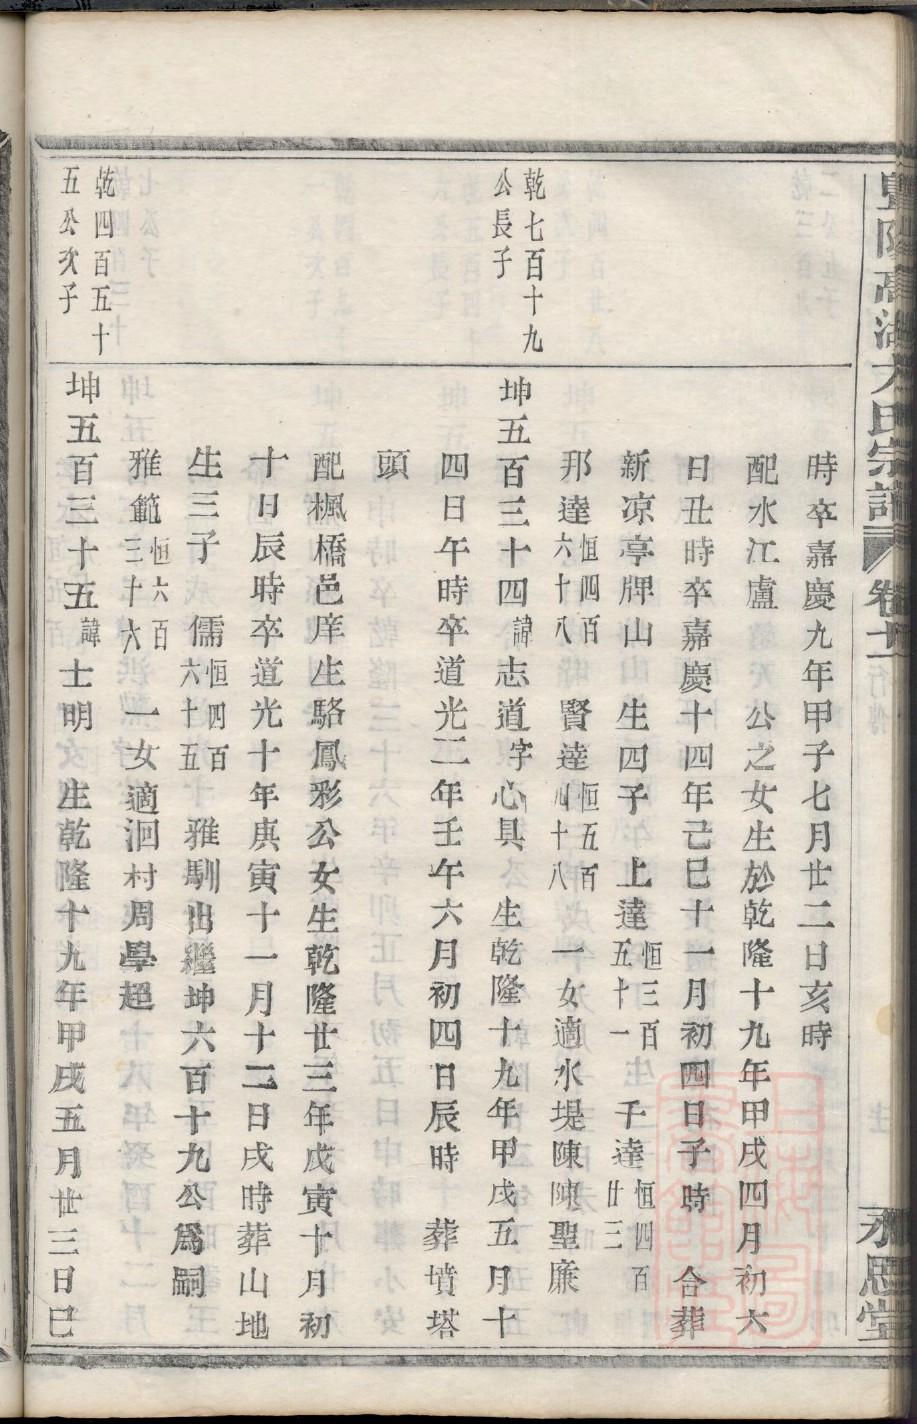 暨陽高湖方氏宗譜
卷
永思堂
時卒嘉慶九年甲子七月廿二日亥時
配水江盧 公之女生於乾隆十九年甲戌四月初六
日丑時卒嘉慶十四年己巳十一月初四日子時 合葬
新凉亭牌山 生四子 上達恒三百五十一 千達恒四百廿三
邦達恒四百六十八 賢達恒五百四十八 一女適水堤陳陳聖廉
乾七百十九
公長子
坤五百三十四諱志道字心具 生乾隆十九年甲戌五月十
四日午時卒道光二年壬午六月初四日辰時 葬墳塔
頭
配楓橋邑庠生駱鳳彩公女生乾隆廿三年戊寅十月初
十日辰時卒道光十年庚寅十一月十二日戌時葬山地
生三子 儒恒四百六十五 雅馴出繼坤六百十九公爲嗣
雅範恒六百三十六 一女適泂村周學超
乾四百五十
五公次子
坤五百三十五諱士明 生乾隆十九年甲戌五月廿三日巳